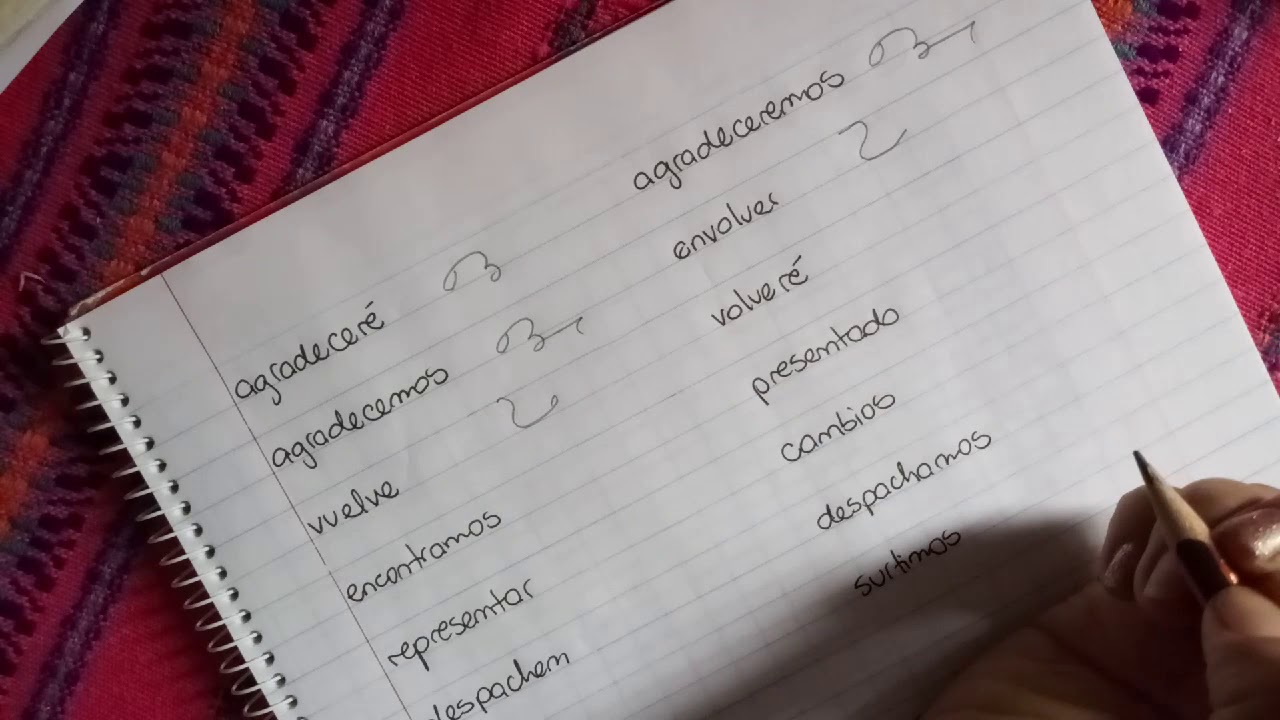 agradeceré
agradecemos
vuelve
encontramos
representar
despachen
agradeceremos
envolver
volveré
presentado
cambios
despachamos
surtimos